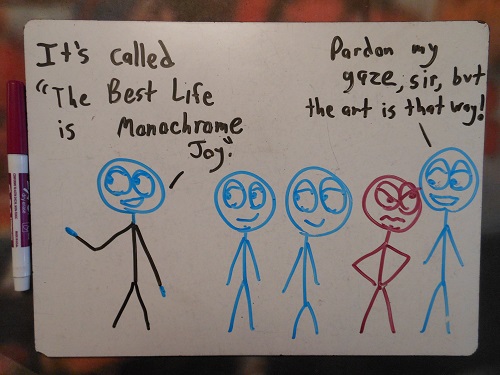 It's called
"The Best Life
is Monochrome
Joy".
Pardon my
gaze, sir, but
the art is that way!